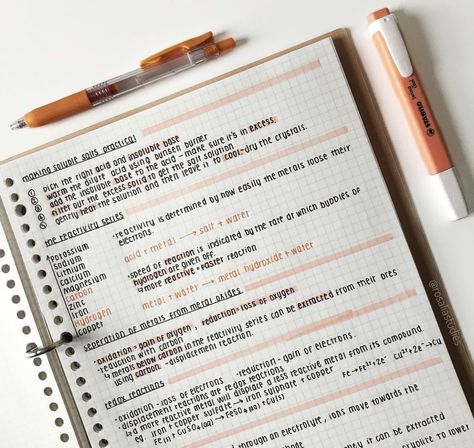 making soluble salts practical
① pick the right acid and insoluble base
② warm the dilute acid using bunsen burner
③ add the insoluble base to the acid - make sure it's in excess.
④ filter our the excess solid to get the salt solution
gently heat the solution and then leave it to cool - dry the crystals.
the reactivity series
potassium
sodium
lithium
calcium
magnesium
carbon
zinc
iron
hydrogen
copper
-reactivity is determined by how easily the metals loose their
electrons.
acid + metal → salt + water
-speed of reaction is indicated by the rate at which bubbles of
hydrogen are given off.
↳ more reactive = faster reaction
metal + water → metal hydroxide + water
seperation of metals from metal oxides
-oxidation = gain of oxygen, reduction = loss of oxygen
-reduction with carbon
↳ metals below carbon in the reactivity series can be extracted from their ores
using carbon - displacement reaction.
redox reactions
-oxidation = loss of electrons
-reduction = gain of electrons
-displacement reactions are redox reactions.
↳ a more reactive metal will displace a less reactive metal from its compound.
eg. iron + copper sulfate → iron sulphate + copper
Fe → Fe²⁺ + 2e⁻
Cu²⁺ + 2e⁻ → Cu
through an electrolyte, ions move towards the
can be extracted
to lower
STABILO
swing cool
@rosaliastudies